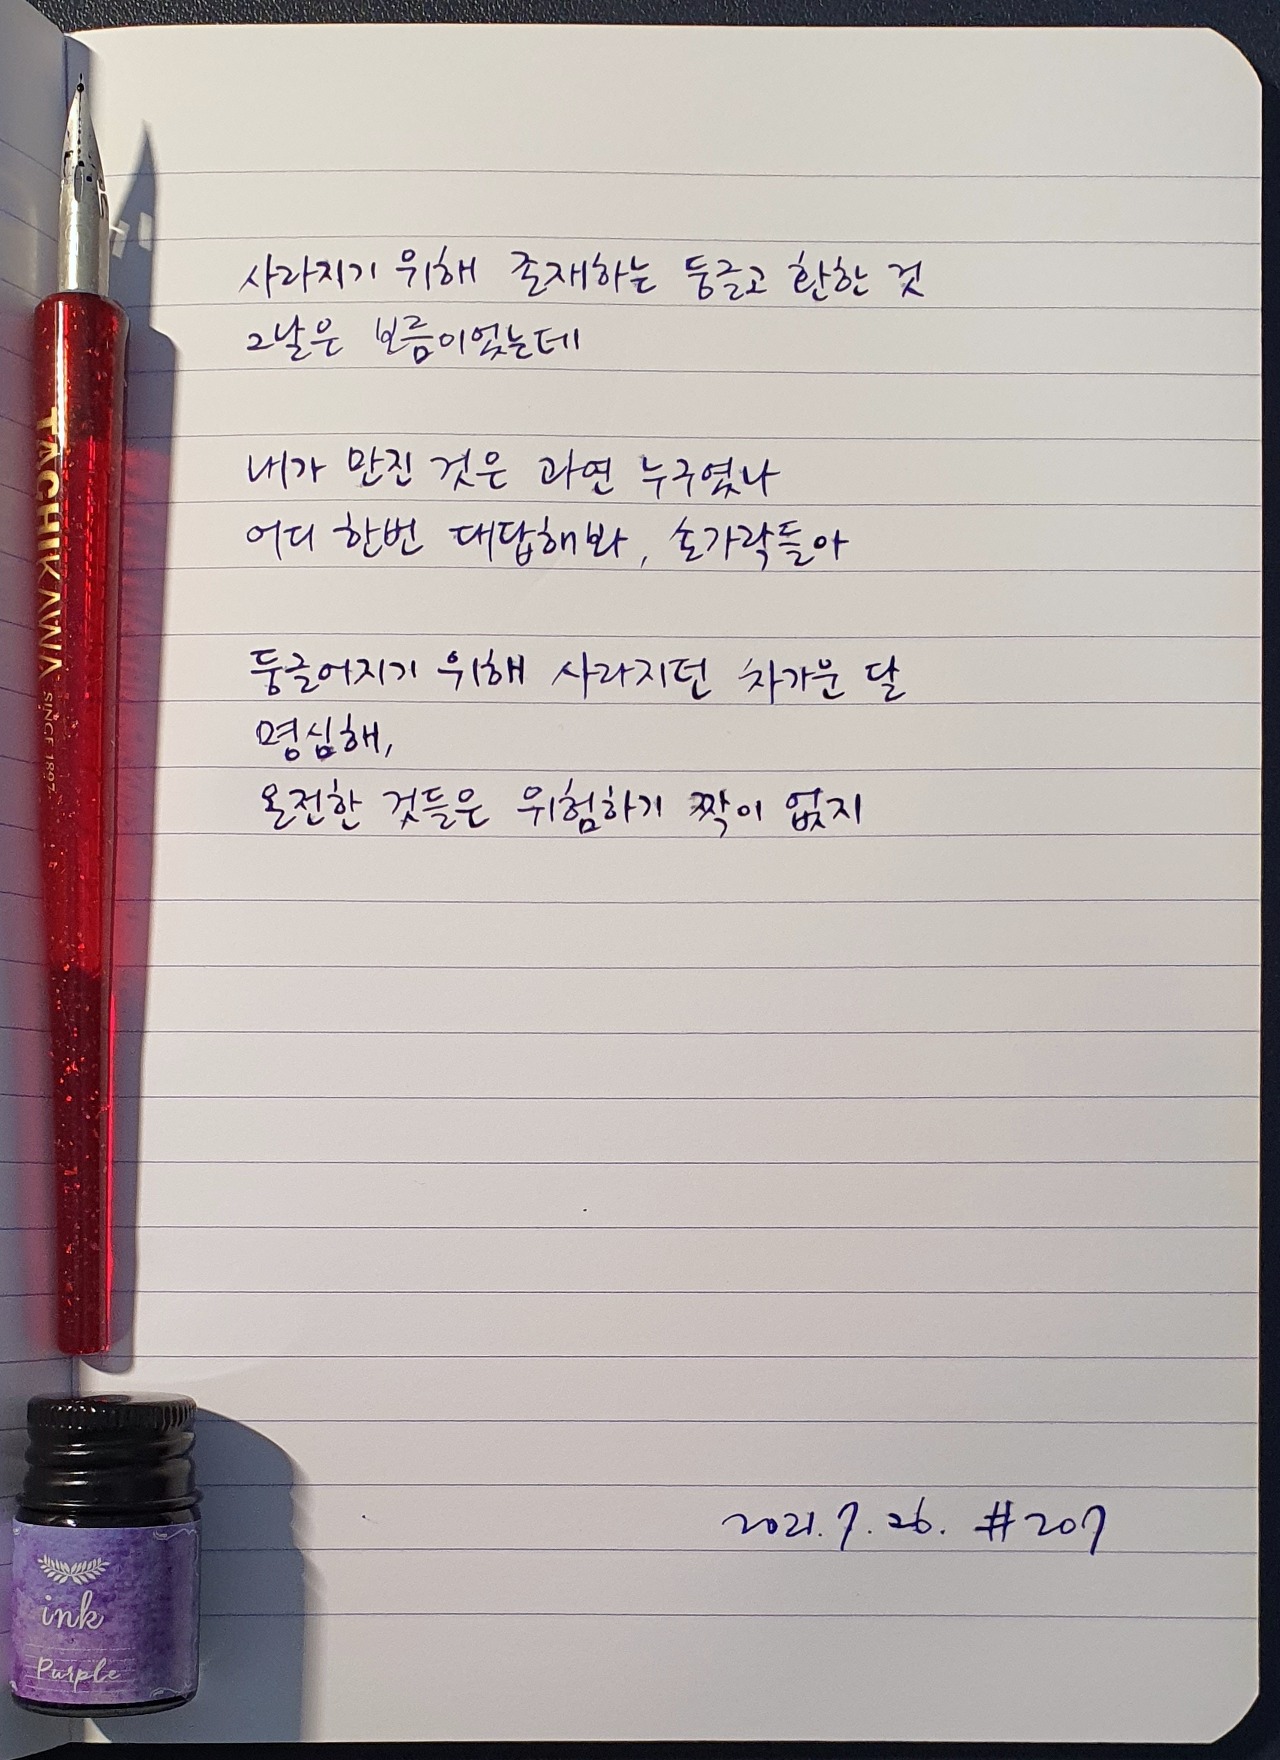 사라지기 위해 존재하는 둥글고 환한 것
그날은 보름이었는데
내가 만진 것은 과연 누구였나
어디 한번 대답해봐, 손가락들아
둥글어지기 위해 사라지던 차가운 달
명심해,
온전한 것들은 위험하기 짝이 없지
2021.7.26. #207
TACHIKAWA SINCE 1897
ink
Purple